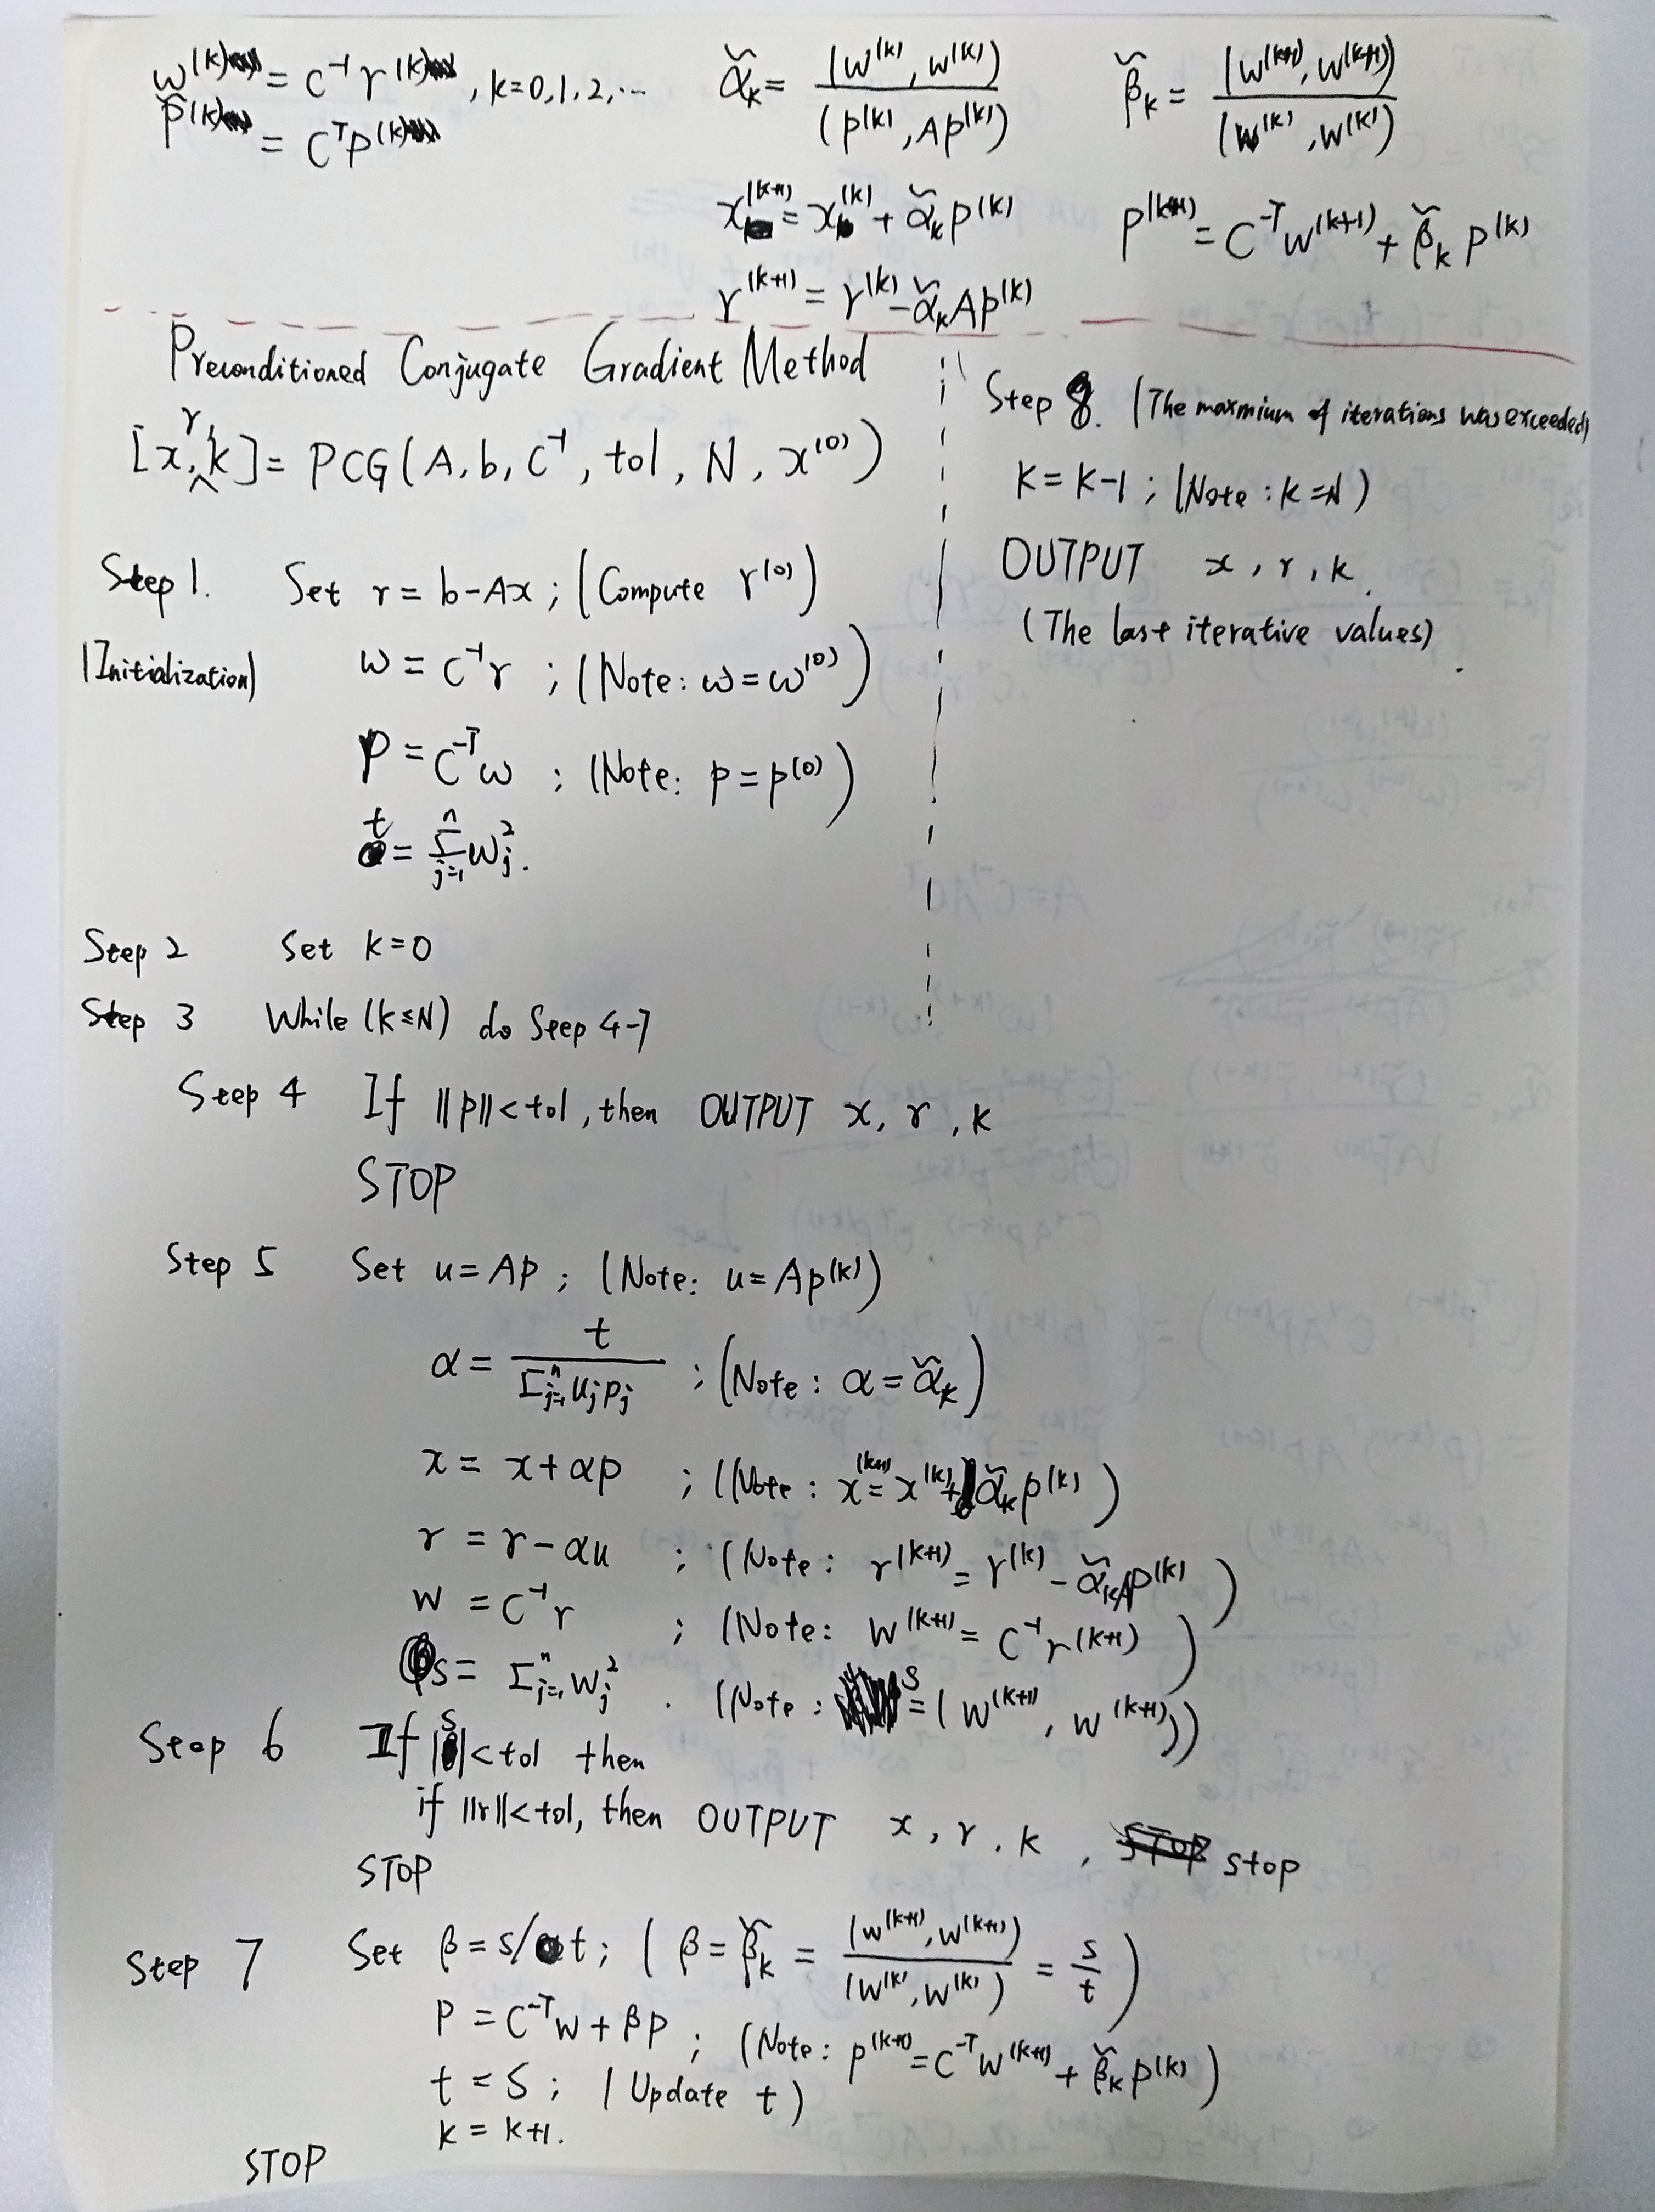 w^(k) = C^-1 r^(k), k=0,1,2,...
p̃^(k) = C^T p^(k)
α̃_k = (w^(k), w^(k)) / (p^(k), Ap^(k))
β̃_k = (w^(k+1), w^(k+1)) / (w^(k), w^(k))
x^(k+1) = x^(k) + α̃_k p^(k)
p^(k+1) = C^-T w^(k+1) + β̃_k p^(k)
r^(k+1) = r^(k) - α̃_k Ap^(k)
Preconditioned Conjugate Gradient Method
[x, r, k] = PCG(A, b, C^-1, tol, N, x^(0))
Step 1. Set r = b-Ax ; (Compute r^(0))
(Initialization) w = C^-1 r ; (Note: w = w^(0))
p = C^-T w ; (Note: p = p^(0))
t = Σ_{j=1}^n w_j^2.
Step 2 Set k=0
Step 3 While (k≤N) do Seep 4-7
Step 4 If ||p|| < tol, then OUTPUT x, r, k
STOP
Step 5 Set u = Ap ; (Note: u = Ap^(k))
α = t / Σ_{j=1}^n u_j p_j ; (Note: α = α̃_k)
x = x + αp ; (Note: x^(k+1) = x^(k) + α̃_k p^(k))
r = r - αu ; (Note: r^(k+1) = r^(k) - α̃_k Ap^(k))
w = C^-1 r ; (Note: w^(k+1) = C^-1 r^(k+1))
s = Σ_{j=1}^n w_j^2 . (Note: s = (w^(k+1), w^(k+1)))
Step 6 If |s| < tol then
if ||r|| < tol, then OUTPUT x, r, k, stop
STOP
Step 7 Set β = s/t; (β = β̃_k = (w^(k+1), w^(k+1)) / (w^(k), w^(k)) = s/t)
p = C^-T w + βp ; (Note: p^(k+1) = C^-T w^(k+1) + β̃_k p^(k))
t = s ; (Update t)
k = k+1.
STOP
Step 8. (The maxmium of iterations was exceeded)
k = k-1 ; (Note: k=N)
OUTPUT x, r, k.
(The last iterative values)